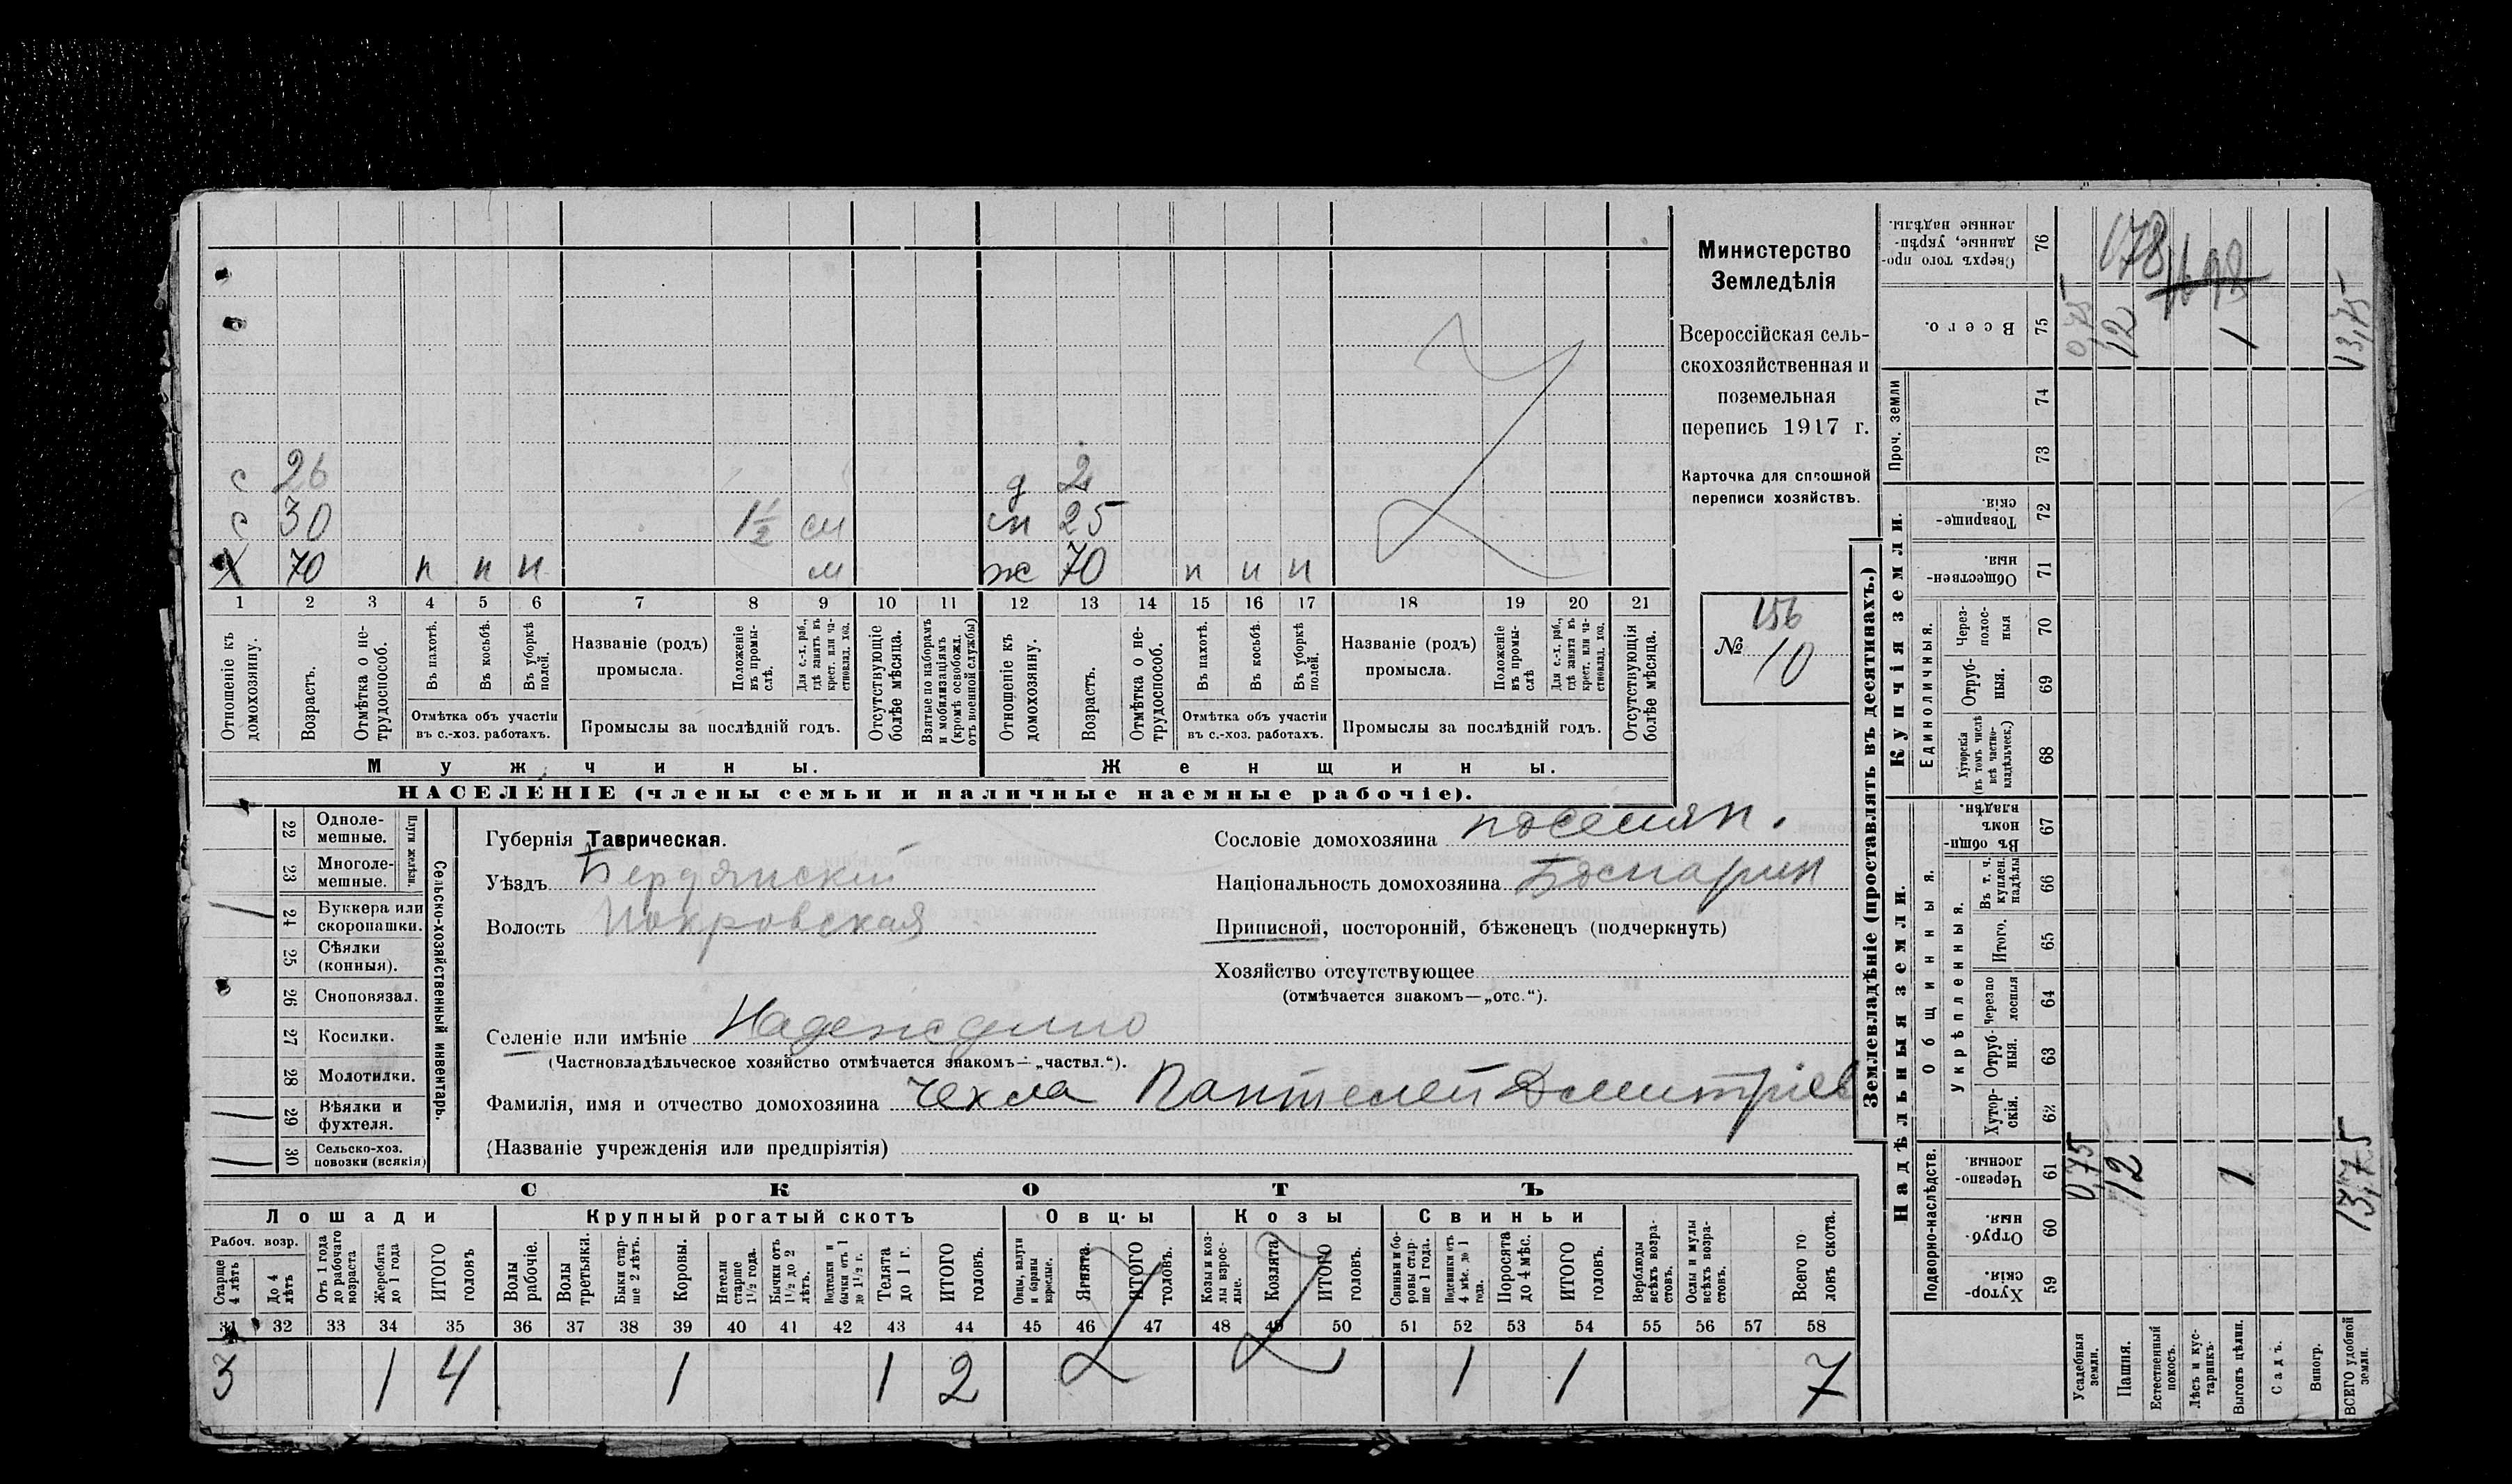 с 26 д 2
с 30 1½ см сн 25
Х 70 п п п м ж 70 п п п
1 2 3 4 5 6 7 8 9 10 11 12 13 14 15 16 17 18 19 20 21
Отношеніе къ домохозяину.
Возрастъ.
Отмѣтка о не-трудоспособ.
Въ пахотѣ.
Въ косьбѣ.
Въ уборкѣ полей.
Отмѣтка объ участіи
въ с.-хоз. работахъ.
Названіе (родъ)
промысла.
Положеніе въ промы-слѣ.
Для с.-х. раб., гдѣ занятъ въ крест. или ча-стновлад. хоз.
Промыслы за послѣдній годъ.
Отсутствующіе болѣе мѣсяца.
Взятые по наборамъ и мобилизаціямъ (кромѣ освобожд. отъ военной службы)
Отношеніе къ домохозяину.
Возрастъ.
Отмѣтка о не-трудоспособ.
Въ пахотѣ.
Въ косьбѣ.
Въ уборкѣ полей.
Отмѣтка объ участіи
въ с.-хоз. работахъ.
Названіе (родъ)
промысла.
Положеніе въ промы-слѣ
Для с.-х. раб., гдѣ занята въ крест. или ча-стновлад. хоз.
Промыслы за послѣдній годъ.
Отсутствующія болѣе мѣсяца.
Мужчины. Женщины.
НАСЕЛЕНІЕ (члены семьи и наличные наемные рабочіе).
Министерство
Земледѣлія
Всероссійская сель-
скохозяйственная и
поземельная
перепись 1917 г.
Карточка для сплошной
переписи хозяйствъ.
156
№ 10
Сельско-хозяйственный инвентарь.
Плуги желѣзн.
22 Одноле-мешные.
23 Многоле-мешные.
1 24 Буккера или скоропашки.
25 Сѣялки (конныя).
26 Сноповязал.
27 Косилки.
28 Молотилки.
1 29 Вѣялки и фухтеля.
1 30 Сельско-хоз. повозки (всякія)
Губернія Таврическая.
Уѣздъ Бердянскій
Волость Покровская
Сословіе домохозяина поселян.
Національность домохозяина Болгарин
Приписной, посторонній, бѣженецъ (подчеркнуть)
Хозяйство отсутствующее
(отмѣчается знакомъ—„отс.“).
Селеніе или имѣніе Надеждино
(Частновладѣльческое хозяйство отмѣчается знакомъ—„частвл.“).
Фамилія, имя и отчество домохозяина Чехла Пантелей Дмитріев
(Названіе учрежденія или предпріятія)
СКОТЪ
Лошади Крупный рогатый скотъ Овцы Козы Свиньи
Рабоч. возр.
Старше 4 лѣтъ
До 4 лѣтъ
Отъ 1 года до рабочаго возраста
Жеребята до 1 года
ИТОГО головъ
Волы рабочіе.
Волы третьяки.
Быки стар-ше 2 лѣтъ.
Коровы.
Нетели старше 1½ года.
Бычки отъ 1½ до 2 лѣтъ.
Подтелки и бычки отъ 1 до 1½ г.
Телята до 1 г.
ИТОГО головъ.
Овцы, валухи и бараны взрослые.
Ягнята.
ИТОГО головъ.
Козы и коз-лы взрос-лые.
Козлята
ИТОГО головъ.
Свиньи и бо-ровы стар-ше 1 года.
Подсвинки отъ 4 мѣс. до 1 года.
Поросята до 4 мѣс.
ИТОГО головъ.
Верблюды всѣхъ возра-стовъ.
Ослы и мулы всѣхъ возра-стовъ.
Всего го ловъ скота.
31 32 33 34 35 36 37 38 39 40 41 42 43 44 45 46 47 48 49 50 51 52 53 54 55 56 57 58
3 1 4 1 1 2 1 1 7
Землевладѣніе (проставлять въ десятинахъ.)
Купчія земли.
Надѣльныя земли.
Сверхъ того про-данные, укрѣп-ленные надѣлы. 76
178
Всего. 75 0,75 12 1 13,75
Проч. земли 74
73
Товарище-скія. 72
Обществен-ныя. 71
Единоличныя.
Через-полос-ныя 70
Отруб-ныя. 69
Хуторскія (въ томъ числѣ всѣ частно-владѣльческ.) 68
Общинныя.
Въ общи-номъ владѣн. 67
Укрѣпленныя.
Въ т. ч. куплен. надѣлы 66
Итого. 65
Черезпо лосныя 64
Отруб-ныя. 63
Хутор-скія. 62
Подворно-наслѣдств.
Черезпо-лосныя. 61 0,75 12 1 13,75
Отруб-ныя. 60
Хутор-скія. 59
Усадебныя земли.
Пашня.
Естественный покосъ.
Лѣсъ и кус-тарникъ.
Выгонъ цѣлин.
Садъ.
Виногр.
ВСЕГО удобной земли.